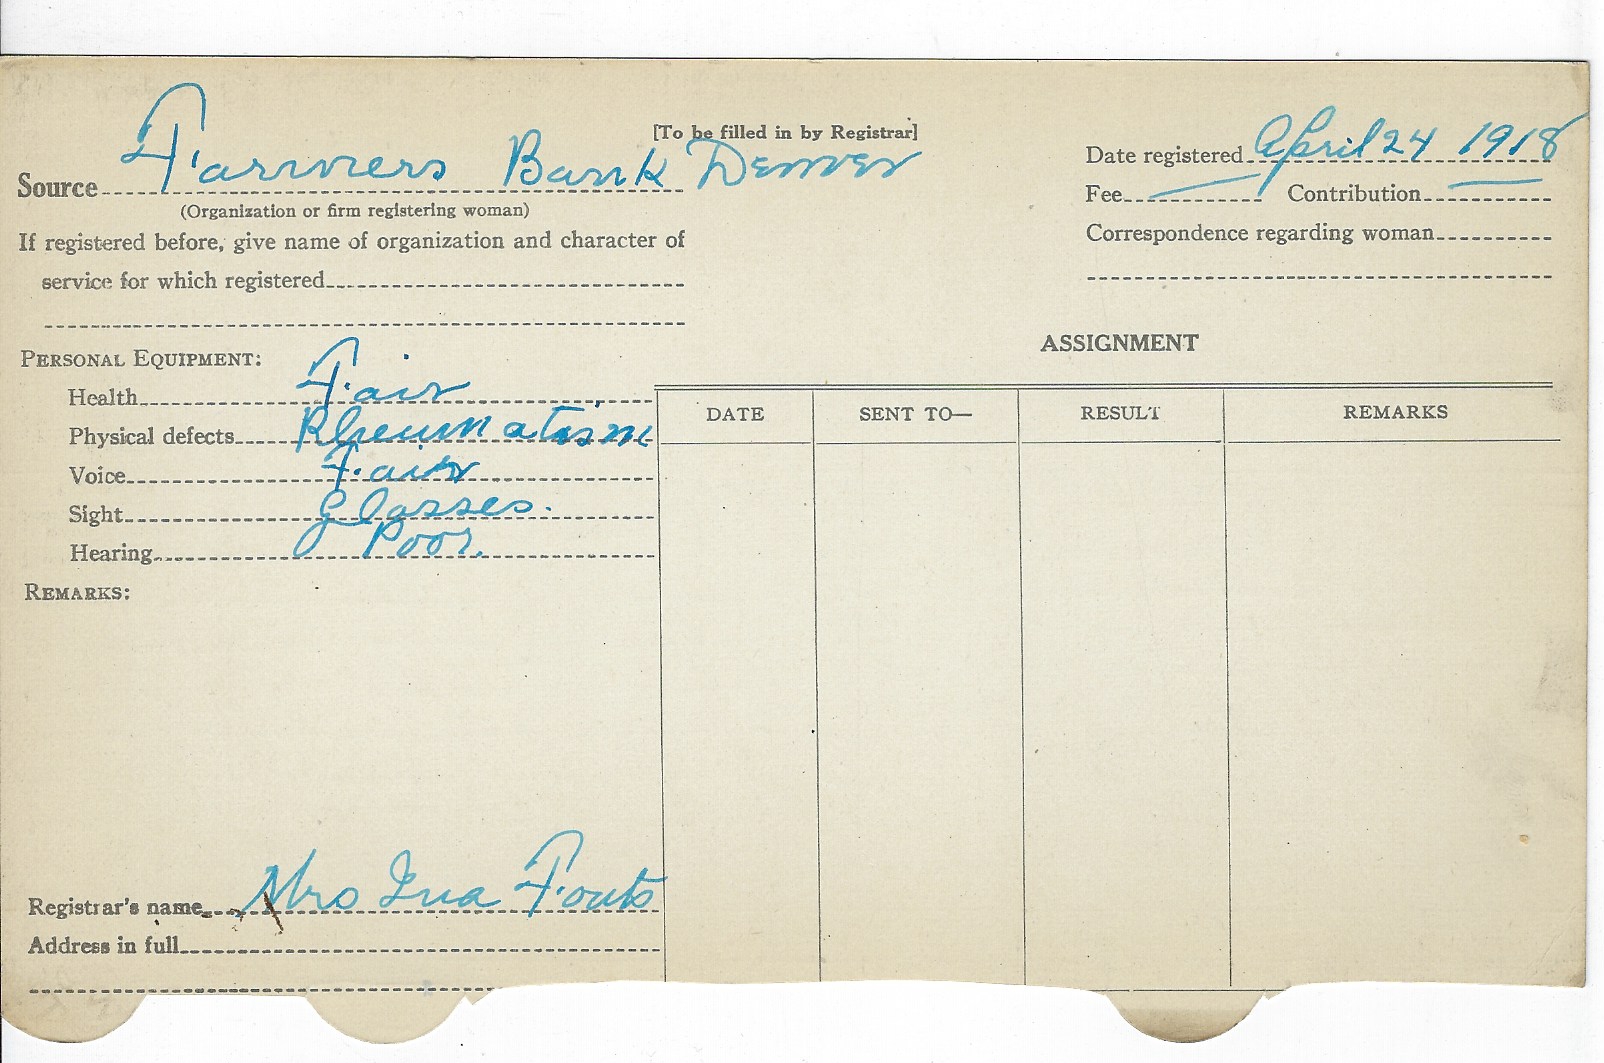 [To be filled in by Registrar]
Source Farmers Bank Denver
(Organization or firm registering woman)
If registered before, give name of organization and character of
service for which registered
Date registered April 24 1918
Fee — Contribution —
Correspondence regarding woman
PERSONAL EQUIPMENT:
Health Fair
Physical defects Rheumatism
Voice Fair
Sight Glasses.
Hearing Poor.
REMARKS:
Registrar's name Mrs Ina Fouts
Address in full
ASSIGNMENT
DATE SENT TO— RESULT REMARKS